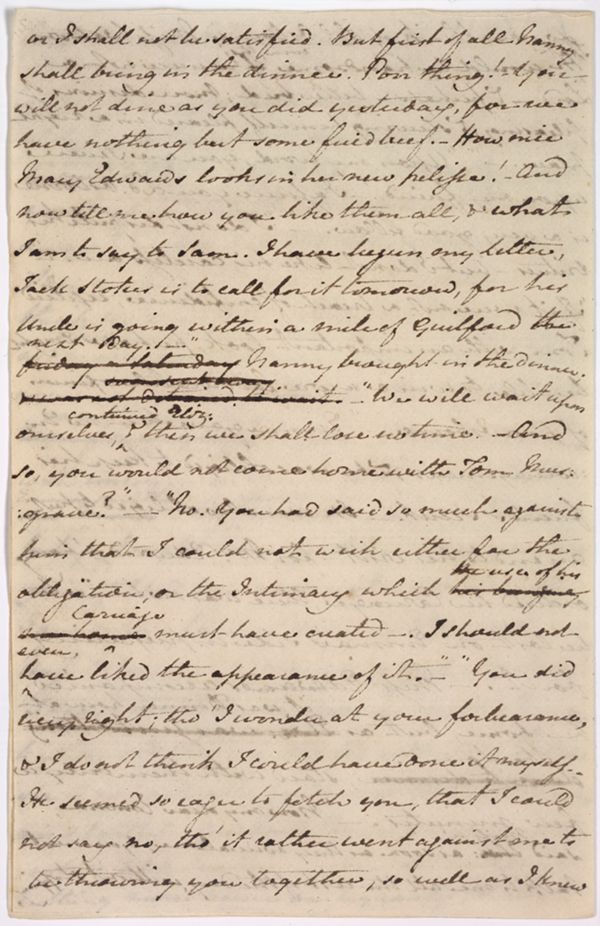 or I shall not be satisfied. But first of all Nanny
shall bring in the dinner. Poor thing! – you
will not dine as you did yesterday, for we
have nothing but some fried beef. – How nice
Mary Edwards looks in her new pelisse! – And
now tell me how you like them all, & what
I am to say to Sam. I have begun my letter,
Jack Stokes is to call for it tomorrow, for his
Uncle is going within a mile of Guilford the
next day. – "
friday or saturday Nanny brought in the dinner.
"We will wait upon
continued Eliz:
ourselves, & then we shall lose no time. – And
so, you would not come home with Tom Mus:
:grave?" – "No. You had said so much against
him that I could not wish either for the
obligation, or the Intimacy which the use of his
Carriage
must have created –. I should not
even
have liked the appearance of it." – " You did
very right; tho' I wonder at your forbearance,
& I do not think I could have done it myself. –
He seemed so eager to fetch you, that I could
not say no, tho' it rather went against me to
be throwing you together, so well as I knew